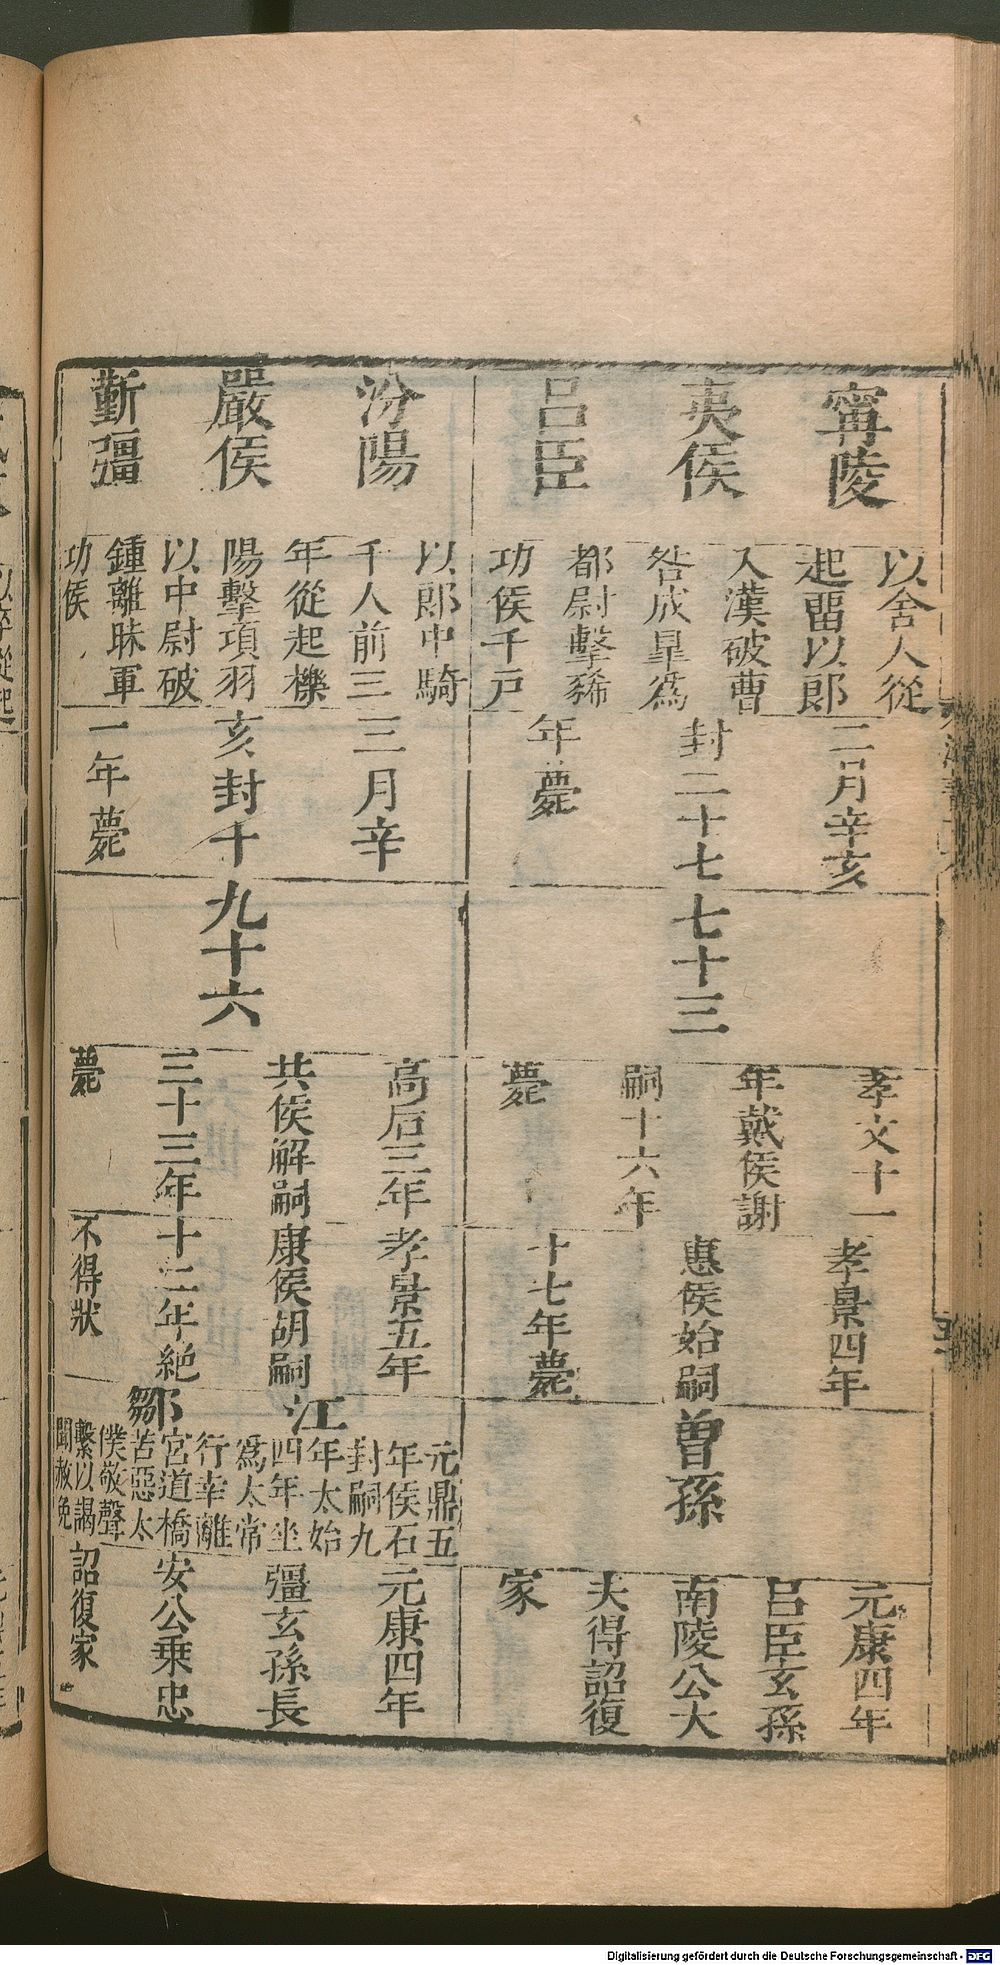 寗陵
夷侯
呂臣
以舍人從
起畱以郎
入漢破曹
咎成臯爲
都尉擊豨
功侯千戸
二月辛亥
封二十七
年薨
七十三
孝文十一
年戴侯謝
嗣十六年
薨
孝景四年
惠侯始嗣
十七年薨
曾孫
元康四年
呂臣玄孫
南陵公大
夫得詔復
家
汾陽
嚴侯
靳彊
以郎中騎
千人前三
年從起櫟
陽擊項羽
以中尉破
鍾離昧軍
功侯
三月辛
亥封十
一年薨
九十六
高后三年
共侯解嗣
三十三年
薨
孝景五年
康侯胡嗣
十二年絶
不得狀
江
鄒
元鼎五
年侯石
封嗣九
年太始
四年坐
爲太常
行幸離
宮道橋
苦惡太
僕敬聲
繫以謁
聞赦免
元康四年
彊玄孫長
安公乘忠
詔復家
Digitalisierung gefördert durch die Deutsche Forschungsgemeinschaft - DFG